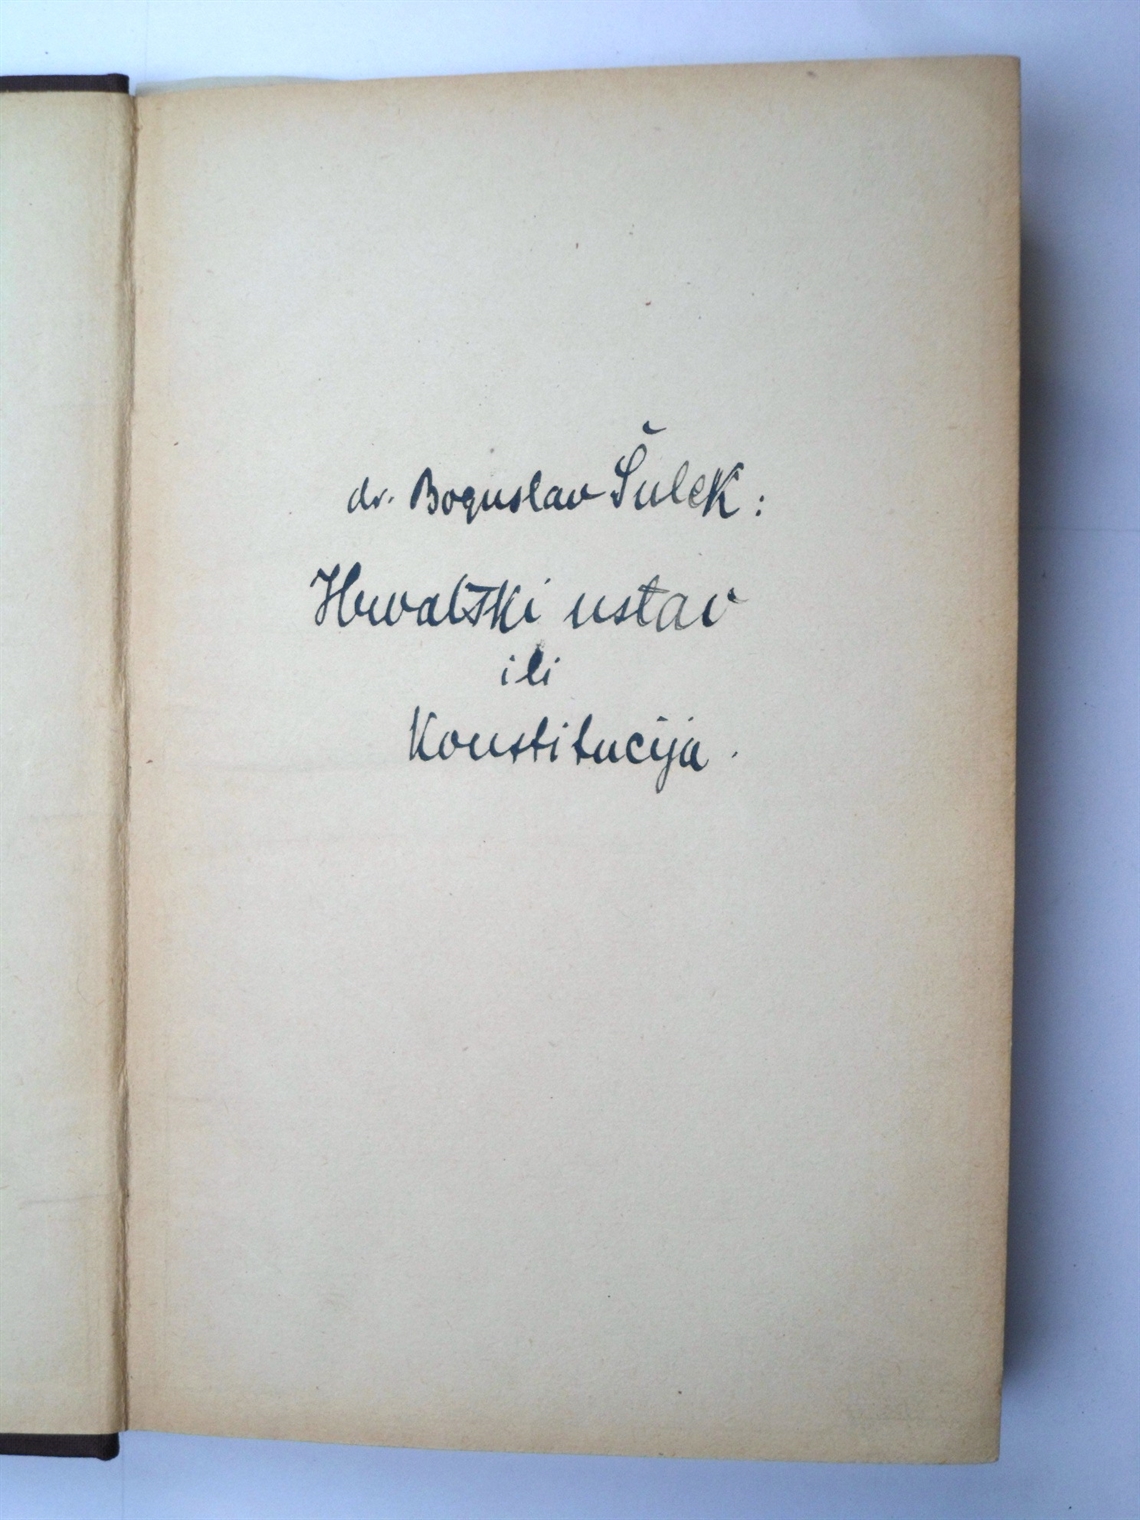 dr. Boguslav Šulek:
Hrvatski ustav
ili
Konstitucija.